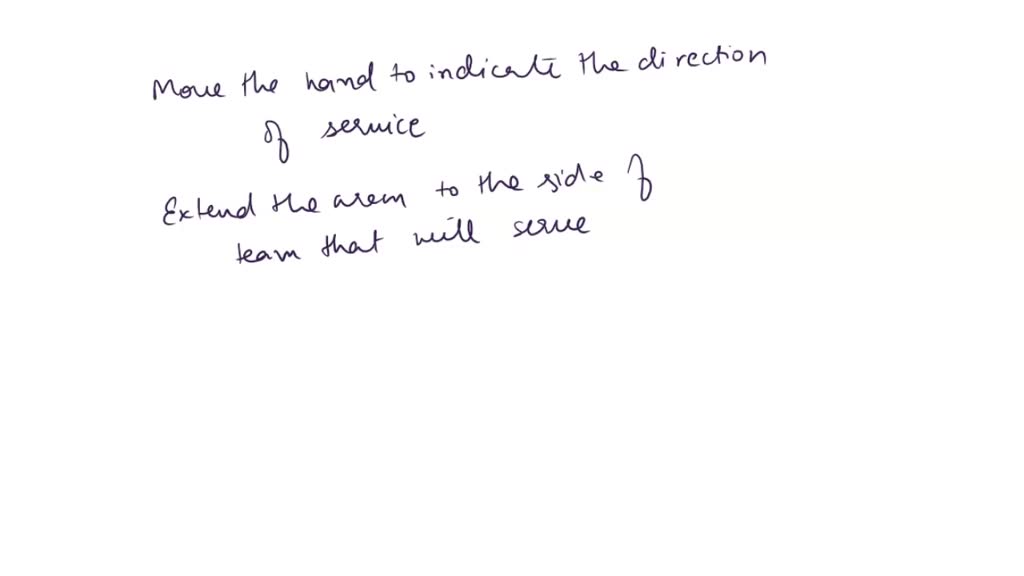 Move the hand to indicate the direction
of service
Extend the arem to the side of
team that will serve